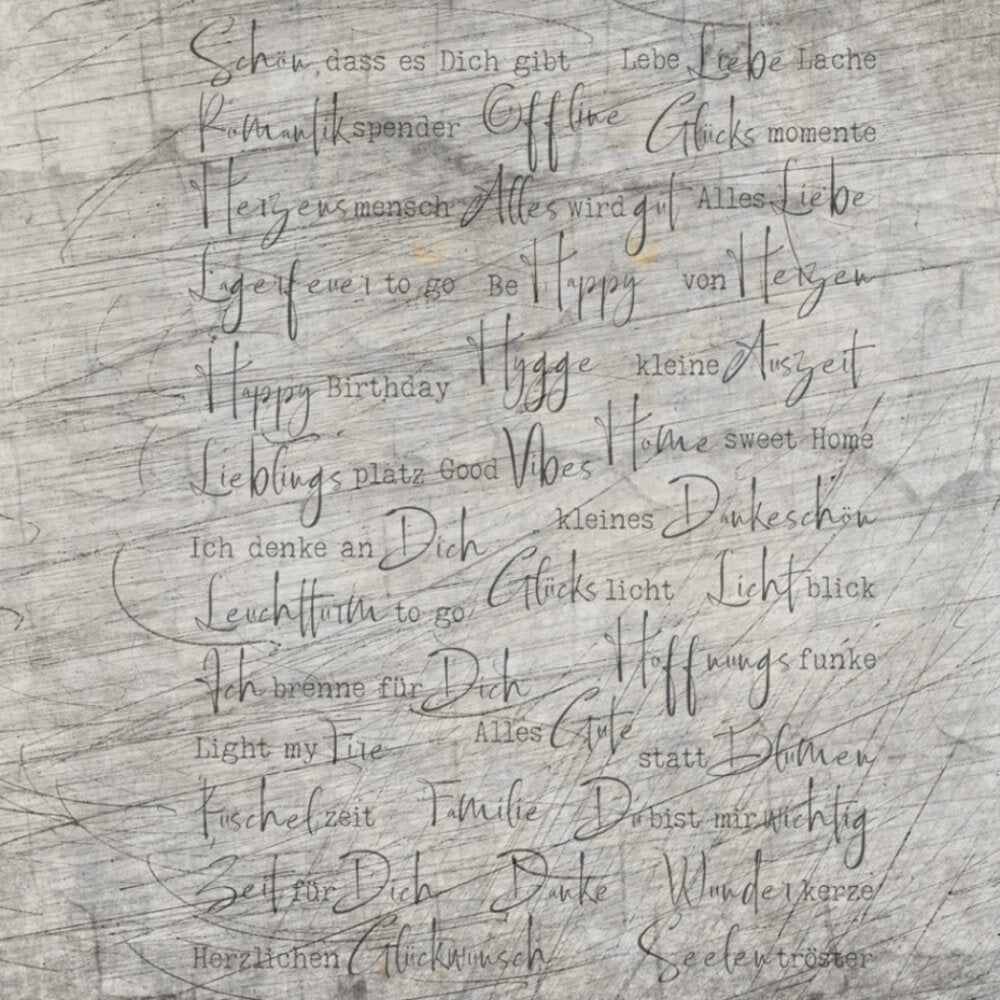 Schön, dass es Dich gibt Lebe Liebe Lache
Romantikspender Offline Glücksmomente
Herzensmensch Alles wird gut Alles Liebe
Lagerfeuer to go Be Happy von Herzen
Happy Birthday Hygge kleine Auszeit
Lieblingsplatz Good Vibes Home sweet Home
Ich denke an Dich kleines Dankeschön
Leuchtturm to go Glückslicht Lichtblick
Ich brenne für Dich Hoffnungsfunke
Light my Fire Alles Gute statt Blumen
Kuschelzeit Familie Du bist mir wichtig
Zeit für Dich Danke Wunderkerze
Herzlichen Glückwunsch Seelentröster